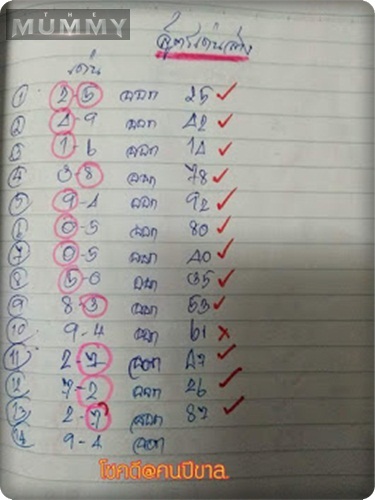 THE
MUMMY
สูตรเด่นล่าง
เด่น
1 2-5 ออก 25 ✓
2 4-9 ออก 42 ✓
3 1-6 ออก 14 ✓
4 3-8 ออก 78 ✓
5 9-4 ออก 92 ✓
6 0-5 ออก 80 ✓
7 0-5 ออก 40 ✓
8 5-0 ออก 35 ✓
9 8-3 ออก 53 ✓
10 9-4 ออก 61 ✗
11 2-7 ออก 47 ✓
12 7-2 ออก 26 ✓
13 2-7 ออก 87 ✓
14 9-4 ออก
โชคดี@คนปีขาล